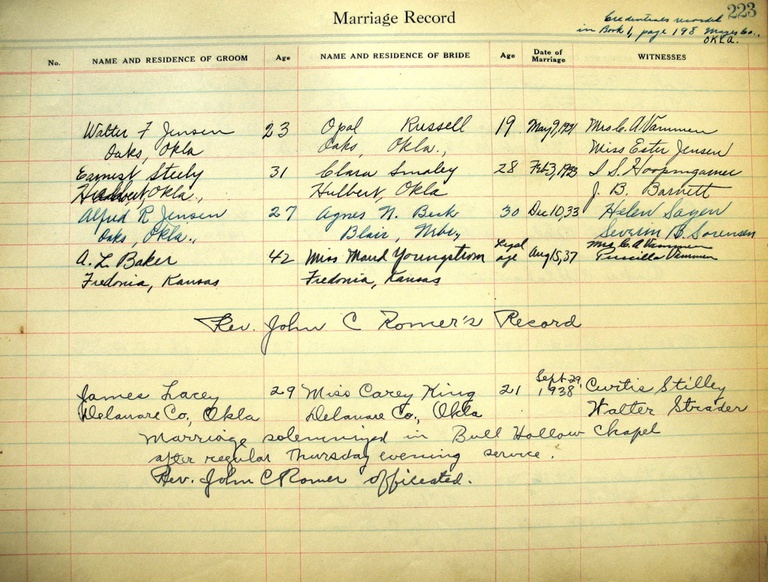 223
Marriage Record
Credentials recorded
in Book 1, page 198 Mayes Co.,
OKLA.
No. NAME AND RESIDENCE OF GROOM Age NAME AND RESIDENCE OF BRIDE Age Date of Marriage WITNESSES
Walter F Jensen 23 Opal Russell 19 May 9, 1931 Mrs C. A Vammen
Oaks, Okla Oaks, Okla., Miss Ester Jensen
Earnest Steely 31 Clara Smaley 28 Feb 3, 1933 I S. Hoopingarner
Okla., Hulbert Okla J. B. Barnett
Alfred R Jensen 27 Agnes N. Beck 30 Dec 10, 33 Helen
Oaks, Okla., Blair, Nebr, Severin B. Sorensen
A. L. Baker 42 Miss Maud Youngstrom Legal age Aug 15, 37 Mrs C A Vammen
Fredonia, Kansas Fredonia, Kansas Priscilla Vammen
Rev. John C Romer's Record
James Lacey 29 Miss Carey King 21 Sept 29, 1938 Curtis Stilley
Delaware Co., Okla Delaware Co., Okla Walter Strader
Marriage solemnized in Bull Hollow Chapel
after regular Thursday evening service.
Rev. John C Romer officiated.